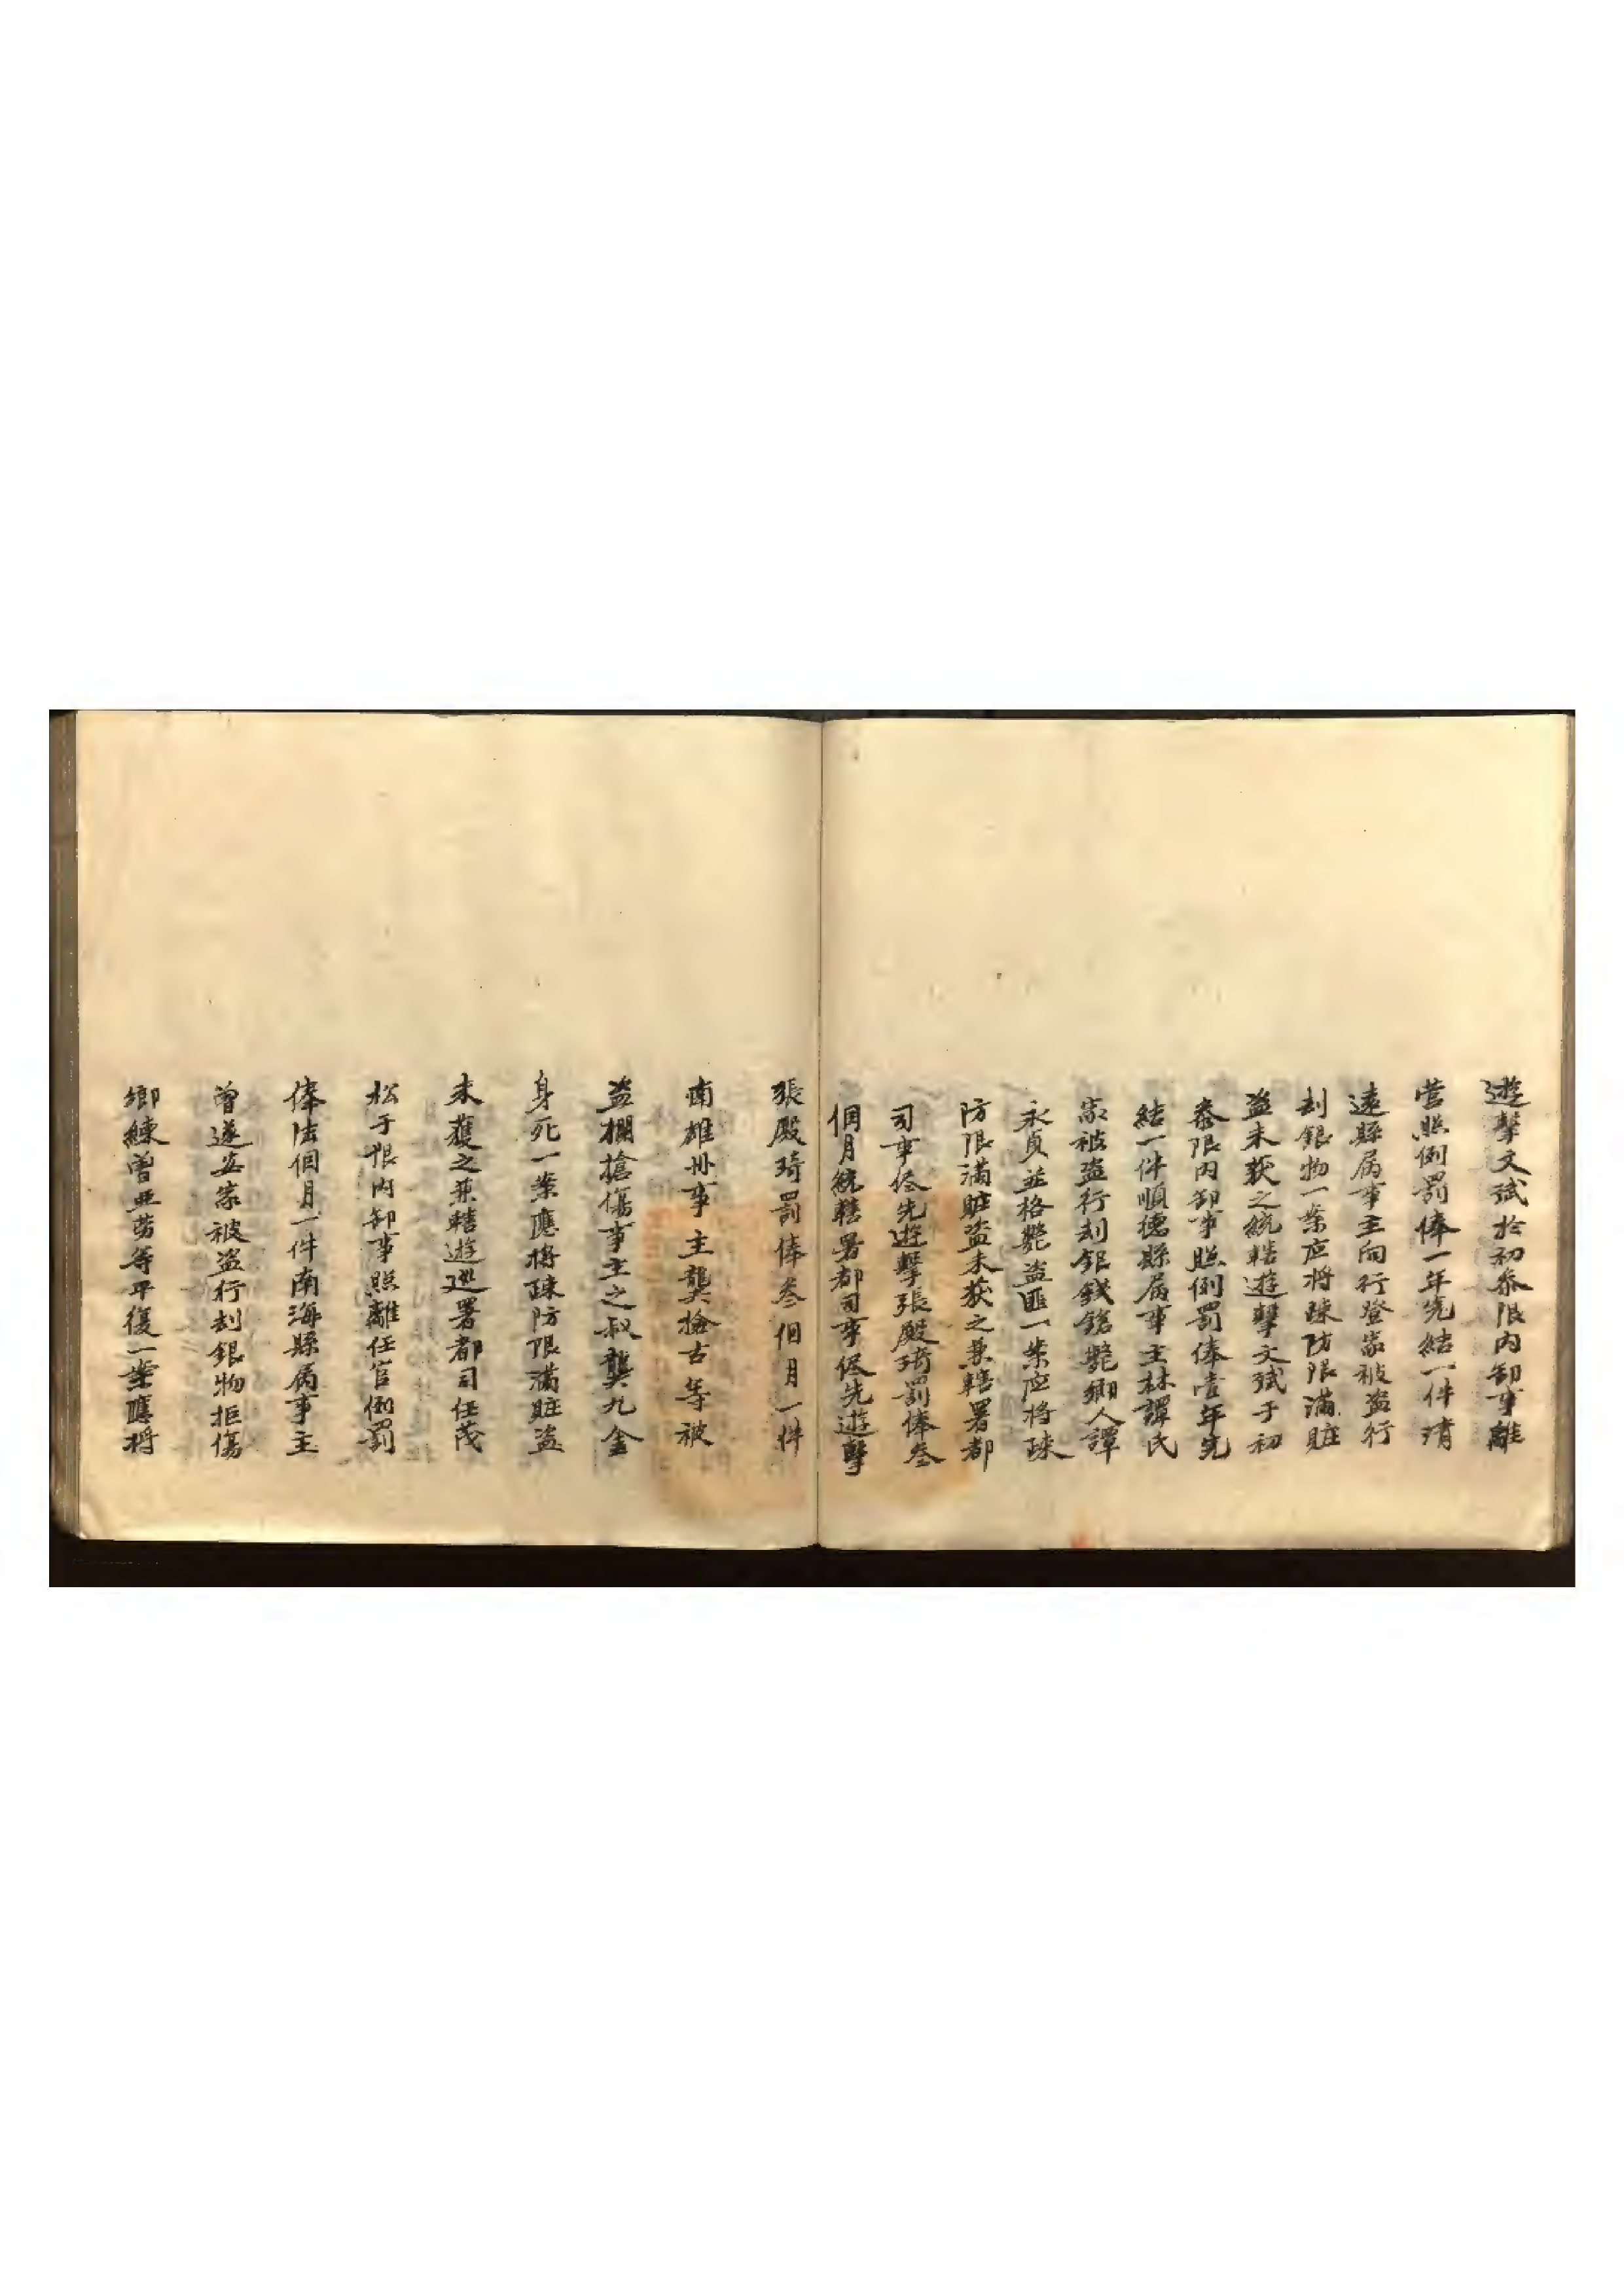 遊擊文斌於初叅限内卸事離
營照例罰俸一年完結一件清
遠縣属事主向行登家被盗行
刦銀物一案应将疎防限滿賍
盗未获之統轄遊擊文斌于初
叅限内卸事照例罰俸壹年完
結一件順德縣属事主林譚氏
家被盗行刦銀錢鎗斃鄉人譚
永貞並格斃盗匪一案应将疎
防限滿賍盗未获之兼轄署都
司事侭先遊擊張殿琦罰俸叁
個月統轄署都司事侭先遊擊
張殿琦罰俸叁個月一件
南雄州事主龔檢古等被
盗攔搶傷事主之叔龔九金
身死一案應将疎防限滿賍盗
未獲之兼轄遊巡署都司任茂
松于限内卸事照離任官例罰
俸陆個月一件南海縣属事主
曾遂安家被盗行刦銀物拒傷
鄉練曾亚茵等平復一案應将